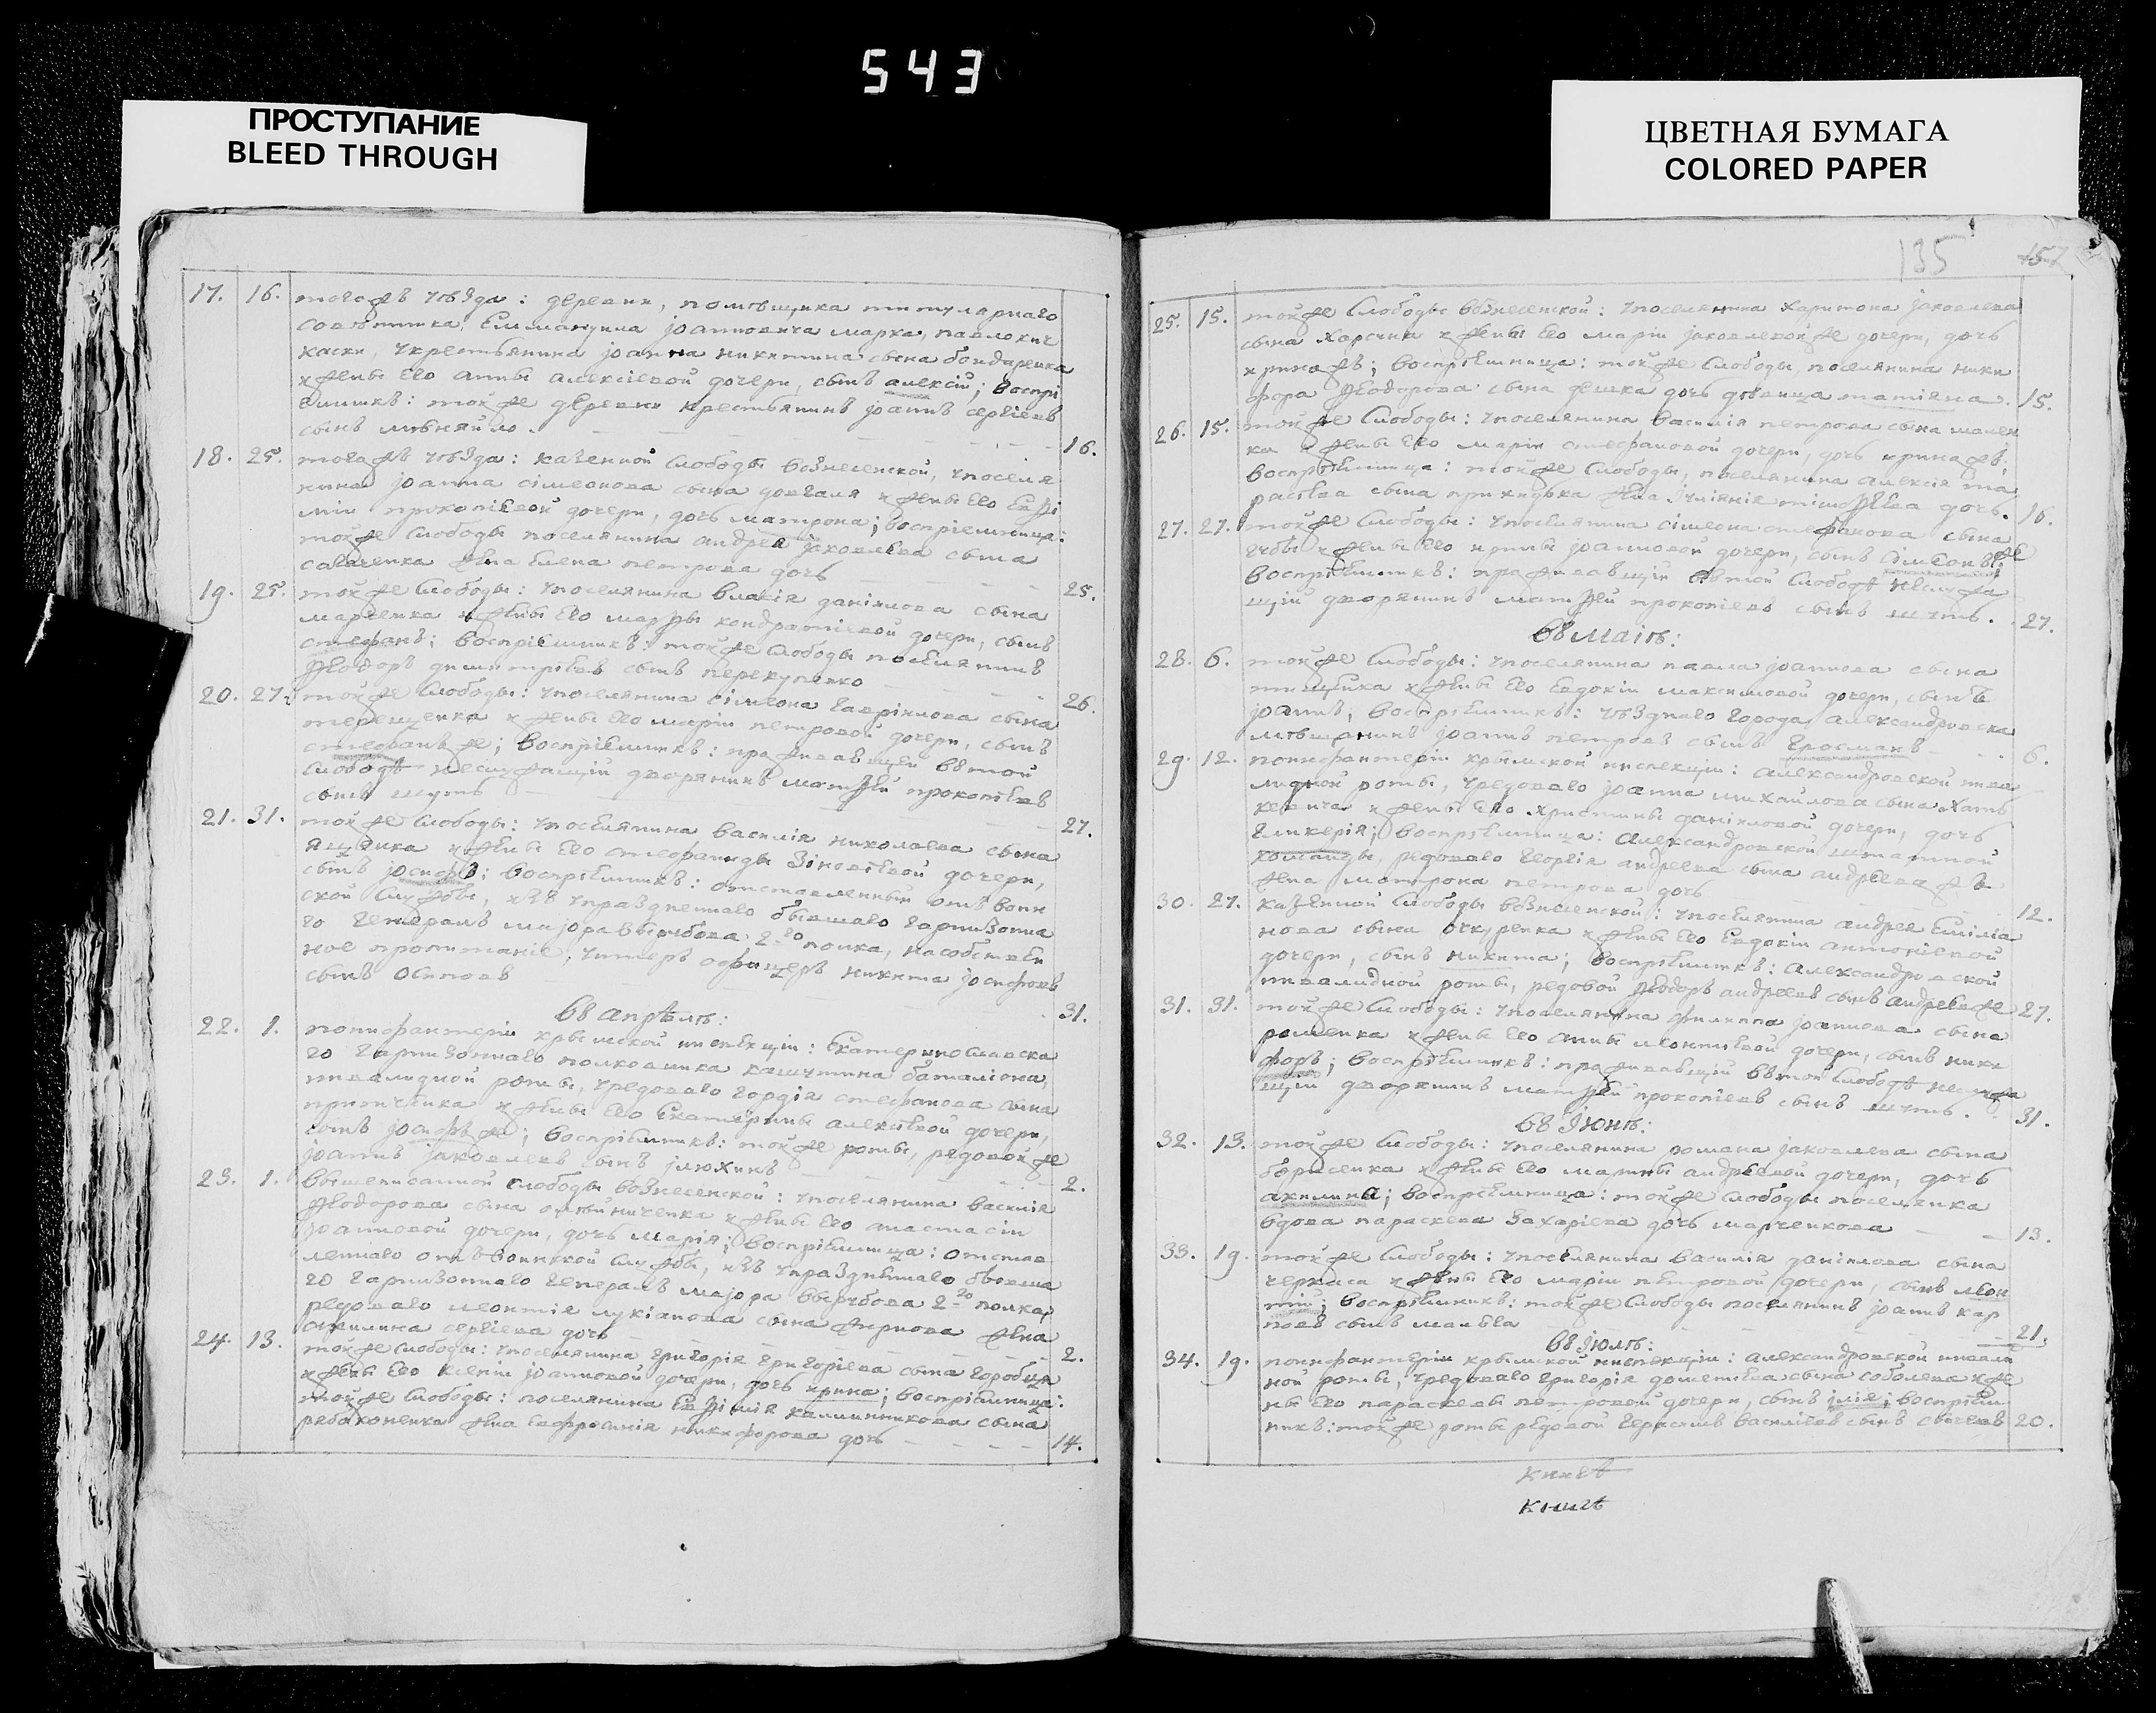 543
ПРОСТУПАНИЕ
BLEED THROUGH
ЦВЕТНАЯ БУМАГА
COLORED PAPER
17. 16. тогожъ уѣзда: деревни, помѣщика титулярнаго
совѣтника, Еммануила Іоанновича марка, павлокич
каски, укрестьянина Іоанна никитина сына бондаренка
и жены его анны алексіевой дочери, сынъ алексій; воспрі
емникъ: той же деревни крестьянинъ Іоаннъ сергіевъ
сынъ 16.
18. 25. тогожъ уѣзда: казенной слободы вознесенской, упоселя
нина Іоанна сімеонова сына довгаля и жены его Евѳи
міи прокопіевой дочери, дочь матрона; воспріемница:
той же слободы поселянина андрея Іаковлева сына
савченка жена Елена петрова дочь 25.
19. 25. той же слободы: упоселянина власія даніилова сына
марченка и жены его марѳы кондратіевой дочери, сынъ
стефанъ; воспріемникъ: той же слободы поселянинъ
Ѳеодоръ димитріевъ сынъ перекупенко 26.
20. 27. той же слободы: упоселянина сімеона гавріилова сына
терещенка и жены его маріи петровой дочери, сынъ
стефанъ же; воспріемникъ: проживающій въ той
слободѣ неслужащій дворянинъ матѳей прокопіевъ
сынъ шутъ 27.
21. 31. той же слободы: упоселянина василія николаева сына
яценка и жены его стефаниды зіновіевой дочери,
сынъ Іосифъ; воспріемникъ: отставленный отъ воин
ской службы, изъ упраздненнаго бывшаго гарнизона
го генералъ маіора вырубова 2го полка, на собствен
ное пропитаніе, унтеръ офицеръ никита Іосифовъ
сынъ осиповъ 31.
въ апрѣлѣ:
22. 1. поинфантеріи крымской инспекціи: Екатеринославска
го гарнизоннаго полковника кашутина баталіона,
инвалидной роты, урядоваго гордія стефанова сына
и жены его Екатерины алексіевой дочери,
сынъ же; воспріемникъ: той же роты, рядовой же
Іоаннъ Іаковлевъ сынъ ілюхинъ 2.
23. 1. вышеписанной слободы вознесенской: упоселянина василія
Ѳеодорова сына олейниченка и жены его анастасіи
Іоанновой дочери, дочь марія; воспріемница: отстав
леннаго отъ воинской службы, изъ упраздненнаго бывша
го гарнизоннаго генералъ маіора вырубова 2го полка,
рядоваго леонтія лукіанова сына жирнова жена
акилина сергіева дочь 2.
24. 13. той же слободы: упоселянина григорія григоріева сына горобця
и жены его ксеніи Іоанновой дочери, дочь ирина; воспріемница:
той же слободы: поселянина Евѳимія каллинникова сына
рябоконенка жена Евфросинія никифорова дочь 14.
135
157
25. 15. той же слободы вознесенской: упоселянина харитона Іаковлева
сына и жены его маріи Іаковлевой же дочери, дочь
ирина жъ; воспріемница: той же слободы, поселянина ники
фора Ѳеодорова сына дочь дѣвица татіана. 15.
26. 15. той же слободы: упоселянина василія петрова сына
ка и жены его маріи стефановой дочери, дочь ирина жъ;
воспріемница: той же слободы, поселянина алексія та
расіева сына приходька жена уліянія тімоѳеева дочь. 16.
27. 27. той же слободы: упоселянина сімеона стефанова сына
и жены его ирины Іоанновой дочери, сынъ сімеонъ же
воспріемникъ: проживающій въ той слободѣ неслужа
щій дворянинъ матѳей прокопіевъ сынъ шутъ. 27.
въ маіѣ:
28. 6. той же слободы: упоселянина павла Іоаннова сына
и жены его Евдокіи максимовой дочери, сынъ
Іоаннъ; воспріемникъ: уѣзднаго города александровска
мѣщанинъ Іоаннъ петровъ сынъ 6.
29. 12. поинфантеріи крымской инспекціи: александровской инва
лидной роты, урядоваго Іоанна михайлова сына
и жены его христины даніиловой дочери, дочь
гликерія; воспріемница: александровской штатной
команды, рядоваго георгія андреева сына андреева жъ
жена матрона петрова дочь 12.
30. 27. казенной слободы вознесенской: упоселянина андрея Еміліа
нова сына очкуренка и жены его Евдокіи антоніевой
дочери, сынъ никита; воспріемникъ: александровской
инвалидной роты, рядовой Ѳеодоръ андреевъ сынъ андреевъ же 27.
31. 31. той же слободы: упоселянина филиппа Іоаннова сына
роменка и жены его анны леонтіевой дочери, сынъ ники
форъ; воспріемникъ: проживающій въ той слободѣ неслужа
щій дворянинъ матѳей прокопіевъ сынъ шутъ. 31.
въ Іюнѣ:
32. 13. той же слободы: упоселянина романа Іаковлева сына
борисенка и жены его марины андреевой дочери, дочь
акилина; воспріемница: той же слободы поселянка
вдова параскева захаріева дочь марченкова 13.
33. 19. той же слободы: упоселянина василія даніилова сына
черкаса и жены его маріи петровой дочери, сынъ леон
тій; воспріемникъ: той же слободы поселянинъ Іоаннъ кар
повъ сынъ 21.
въ Іюлѣ:
34. 19. поинфантеріи крымской инспекціи: александровской инвалид
ной роты, урядоваго григорія дометіева сына соболева и же
ны его параскевы петровой дочери, сынъ ілія; воспріем
никъ: той же роты рядовой герасимъ василіевъ сынъ 20.
книгѣ
книгѣ